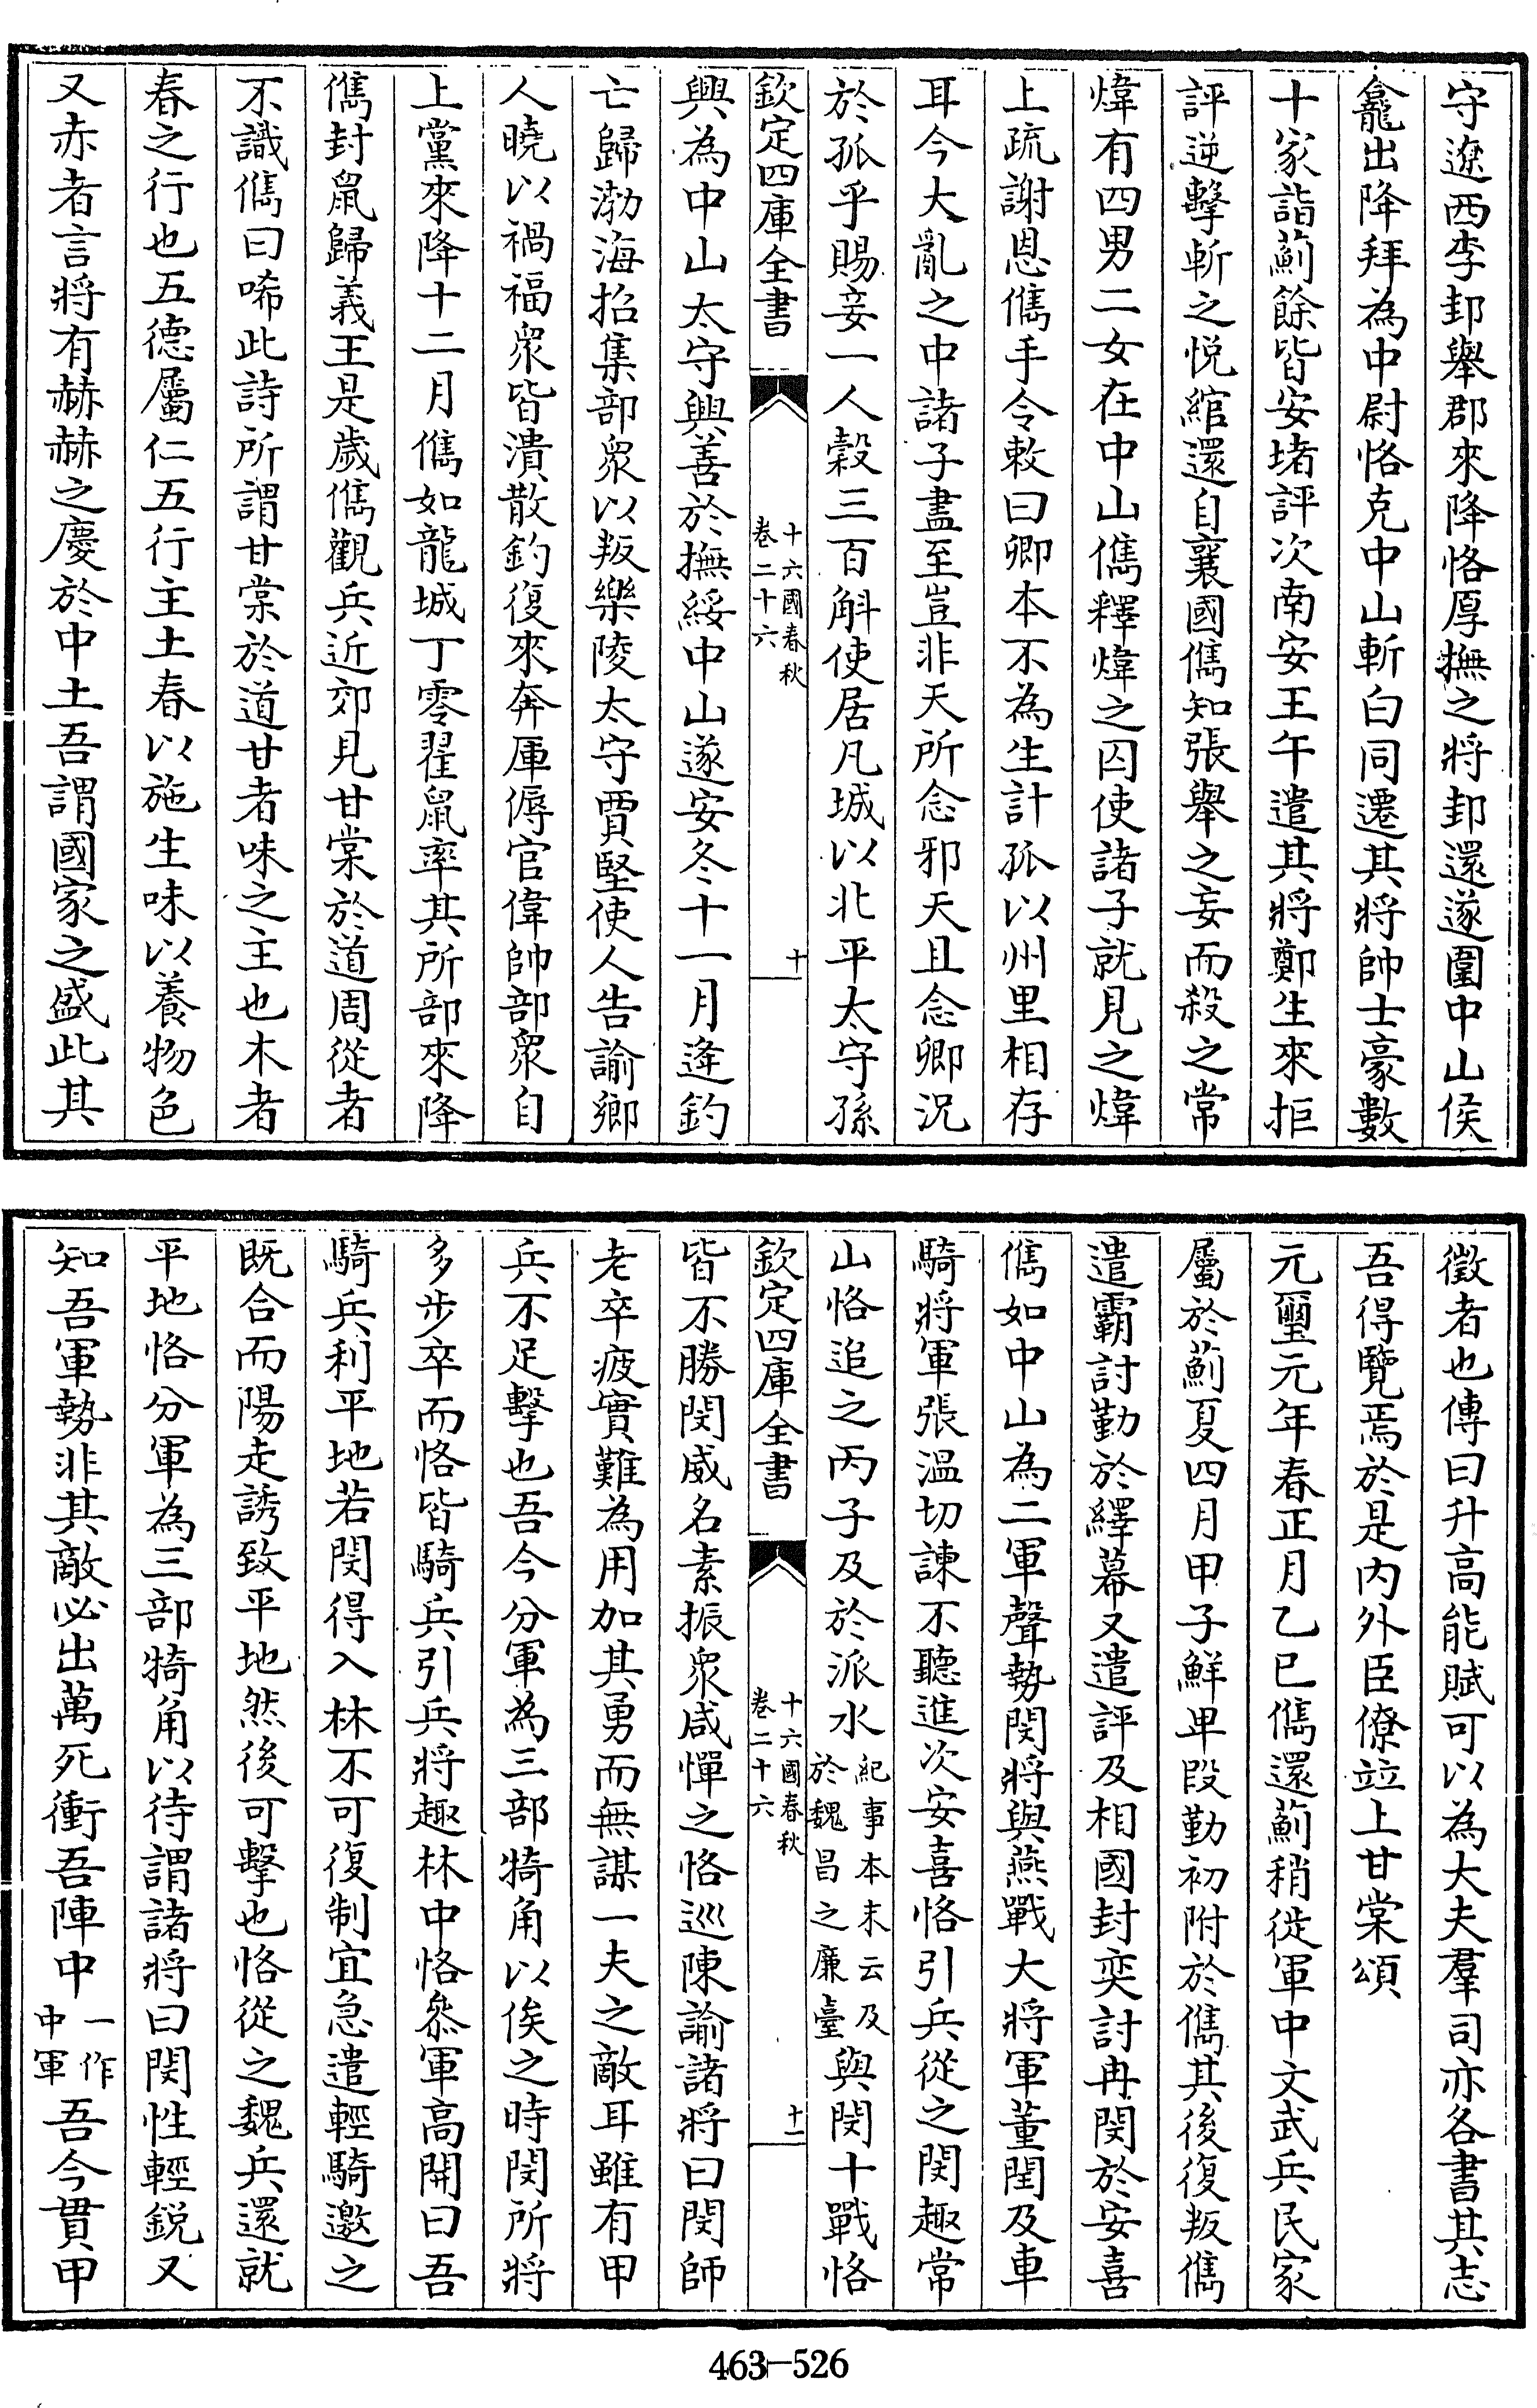 守遼西李邽舉郡來降恪厚撫之將邽還遂圍中山侯
龕出降拜為中尉恪克中山斬白同遷其將帥士豪數
十家詣薊餘皆安堵評次南安王午遣其將鄭生來拒
評逆擊斬之悅綰還自襄國儁知張舉之妄而殺之常
煒有四男二女在中山儁釋煒之囚使諸子就見之煒
上疏謝恩儁手令敕曰卿本不為生計孤以州里相存
耳今大亂之中諸子盡至豈非天所念邪天且念卿況
於孤乎賜妾一人穀三百斛使居凡城以北平太守孫
欽定四庫全書
十六國春秋
卷二十六
十
興為中山太守興善於撫綏中山遂安冬十一月逄釣
亡歸渤海招集部眾以叛樂陵太守賈堅使人告諭鄉
人曉以禍福眾皆潰散釣復來奔厙傉官偉帥部眾自
上黨來降十二月儁如龍城丁零翟鼠率其所部來降
儁封鼠歸義王是歲儁觀兵近郊見甘棠於道周從者
不識儁曰唏此詩所謂甘棠於道甘者味之主也木者
春之行也五德屬仁五行主土春以施生味以養物色
又赤者言將有赫赫之慶於中土吾謂國家之盛此其
徵者也傳曰升高能賦可以為大夫羣司亦各書其志
吾得覽焉於是內外臣僚竝上甘棠頌
元璽元年春正月乙巳儁還薊稍徙軍中文武兵民家
屬於薊夏四月甲子鮮卑段勤初附於儁其後復叛儁
遣霸討勤於繹幕又遣評及相國封奕討冉閔於安喜
儁如中山為二軍聲勢閔將與燕戰大將軍董閏及車
騎將軍張溫切諫不聽進次安喜恪引兵從之閔趣常
山恪追之丙子及於派水紀事本末云及
於魏昌之廉臺與閔十戰恪
欽定四庫全書
十六國春秋
卷二十六
十一
皆不勝閔威名素振眾咸憚之恪巡陳諭諸將曰閔師
老卒疲實難為用加其勇而無謀一夫之敵耳雖有甲
兵不足擊也吾今分軍為三部犄角以俟之時閔所將
多步卒而恪皆騎兵引兵將趣林中恪叅軍高開曰吾
騎兵利平地若閔得入林不可復制宜急遣輕騎邀之
既合而陽走誘致平地然後可擊也恪從之魏兵還就
平地恪分軍為三部犄角以待謂諸將曰閔性輕銳又
知吾軍勢非其敵必出萬死衝吾陣中一作
中軍吾今貫甲
463-526